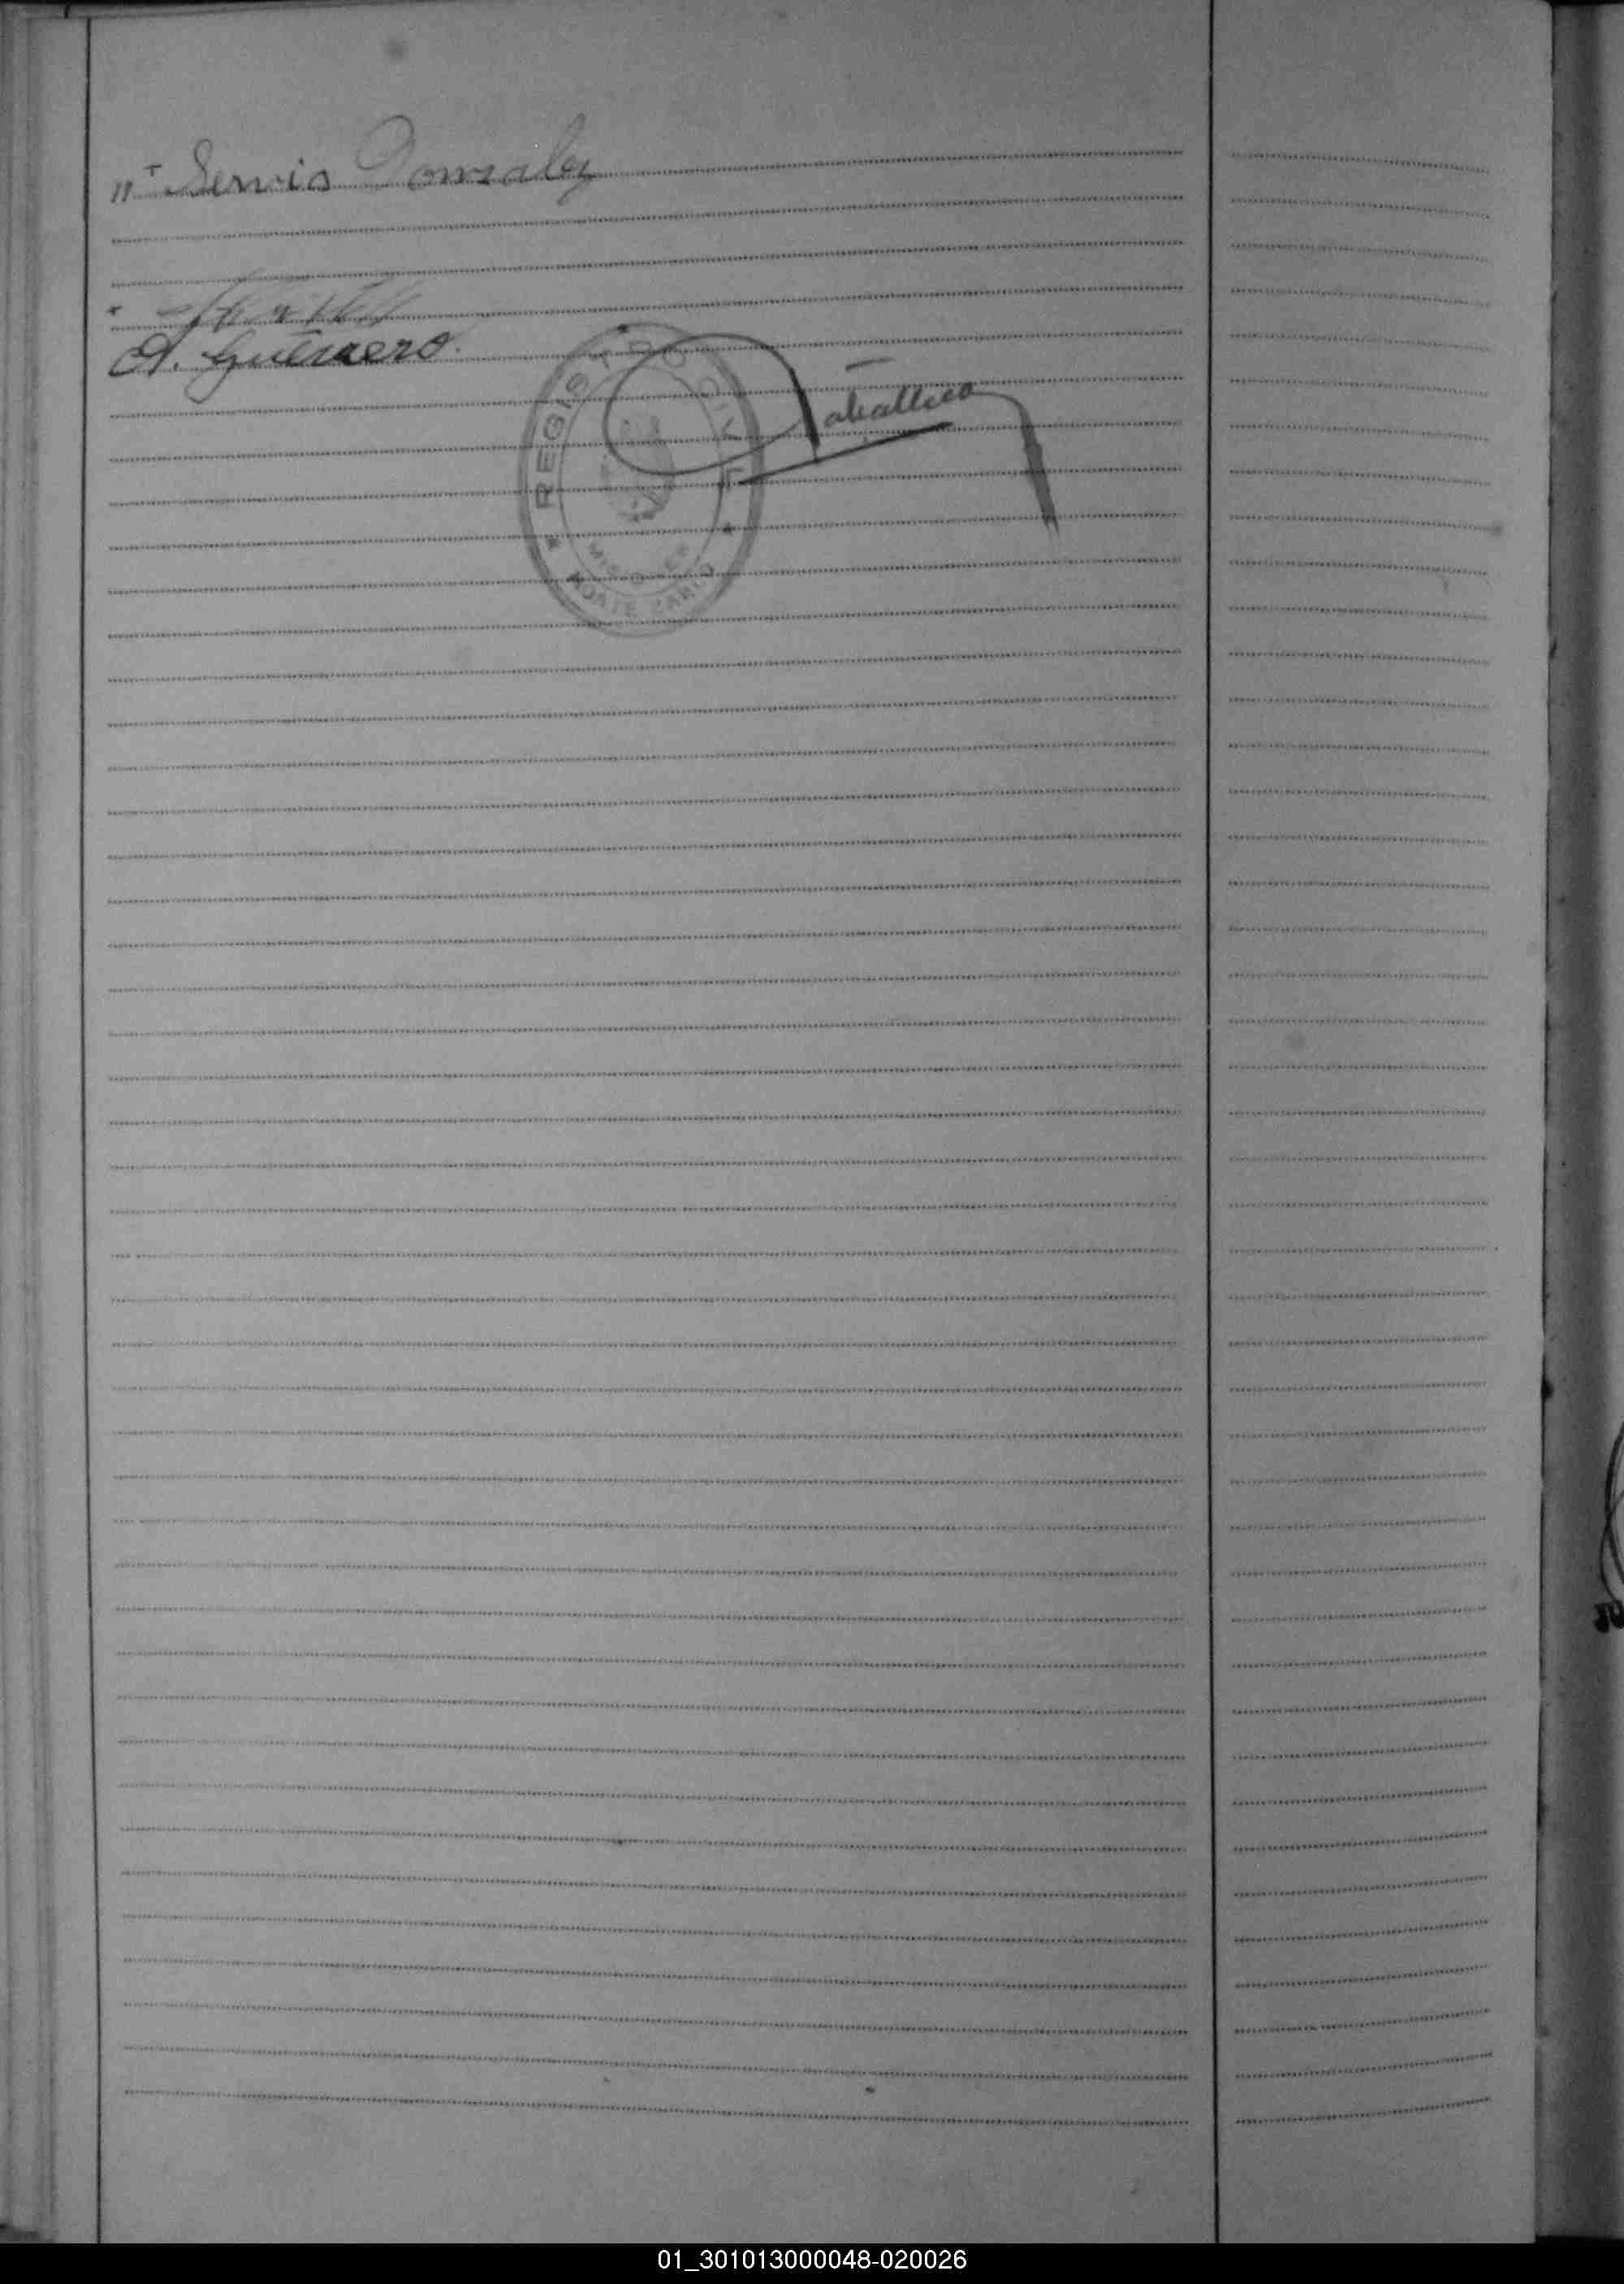 Servio Gonzalez
A. Guerrero.
Caballero
REGISTRO CIVIL
MISIONES
MONTE CARLO
01_301013000048-020026